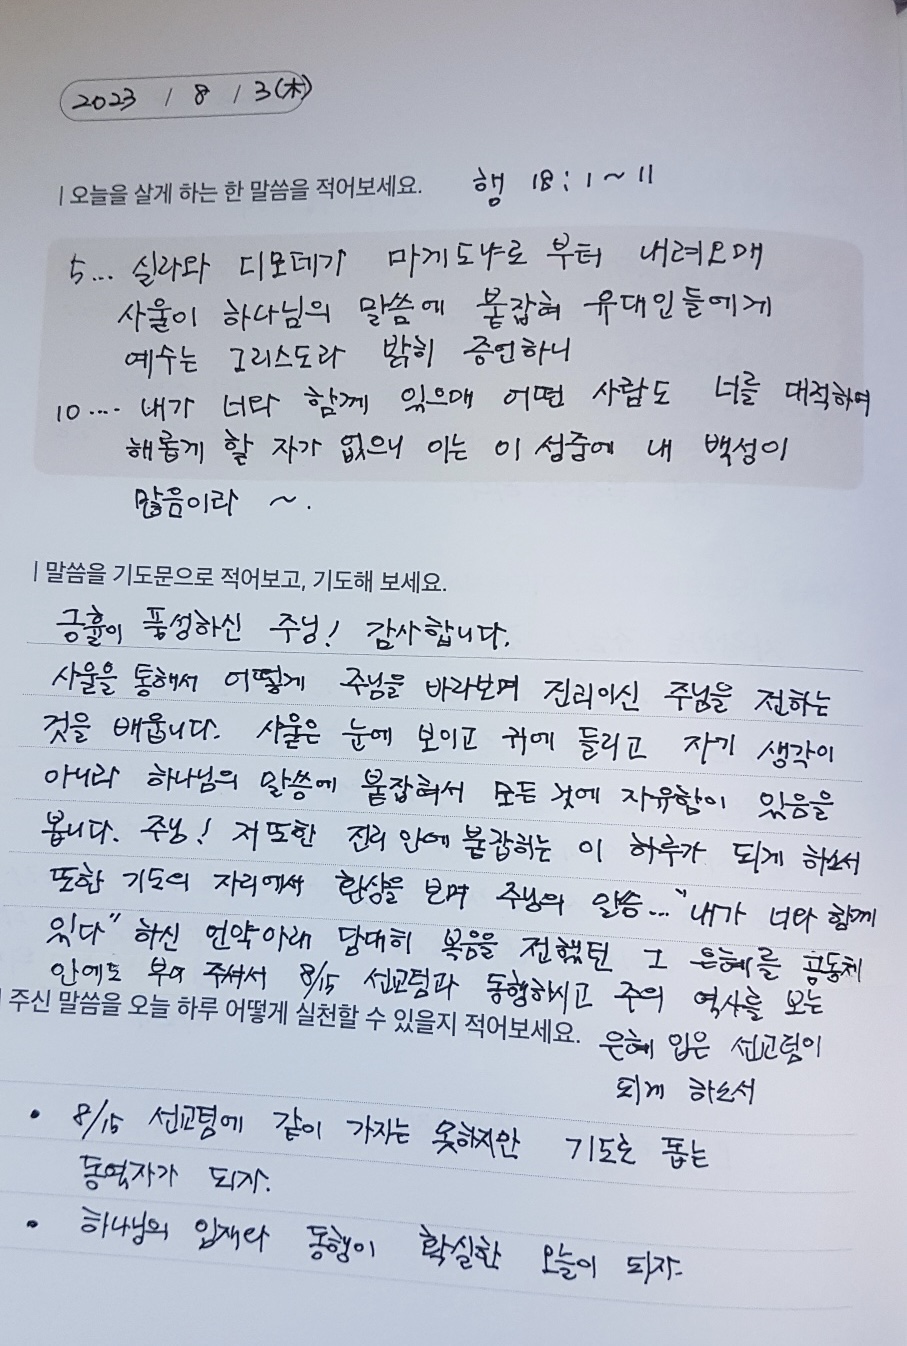 2023 / 8 / 3(木)
오늘을 살게 하는 한 말씀을 적어보세요. 행 18 : 1 ~ 11
5... 실라와 디모데가 마게도냐로 부터 내려오매
사울이 하나님의 말씀에 붙잡혀 유대인들에게
예수는 그리스도라 밝히 증언하니
10.... 내가 너와 함께 있으매 어떤 사람도 너를 대적하여
해롭게 할 자가 없으니 이는 이 성중에 내 백성이
많음이라 ~.
말씀을 기도문으로 적어보고, 기도해 보세요.
긍휼이 풍성하신 주님! 감사합니다.
사울을 통해서 어떻게 주님을 바라보며 진리이신 주님을 전하는
것을 배웁니다. 사울은 눈에 보이고 귀에 들리고 자기 생각이
아니라 하나님의 말씀에 붙잡혀서 모든 것에 자유함이 있음을
봅니다. 주님! 저 또한 진리 안에 붙잡히는 이 하루가 되게 하소서
또한 기도의 자리에서 환상을 보며 주님의 말씀... "내가 너와 함께
있다" 하신 언약아래 담대히 복음을 전했던 그 은혜를 공동체
안에도 부어 주셔서 8/15 선교팀과 동행하시고 주의 역사를 보는
주신 말씀을 오늘 하루 어떻게 실천할 수 있을지 적어보세요. 은혜 입은 선교팀이
되게 하소서
• 8/15 선교팀에 같이 가지는 못하지만 기도로 돕는
동역자가 되자.
• 하나님의 임재와 동행이 확실한 오늘이 되자.